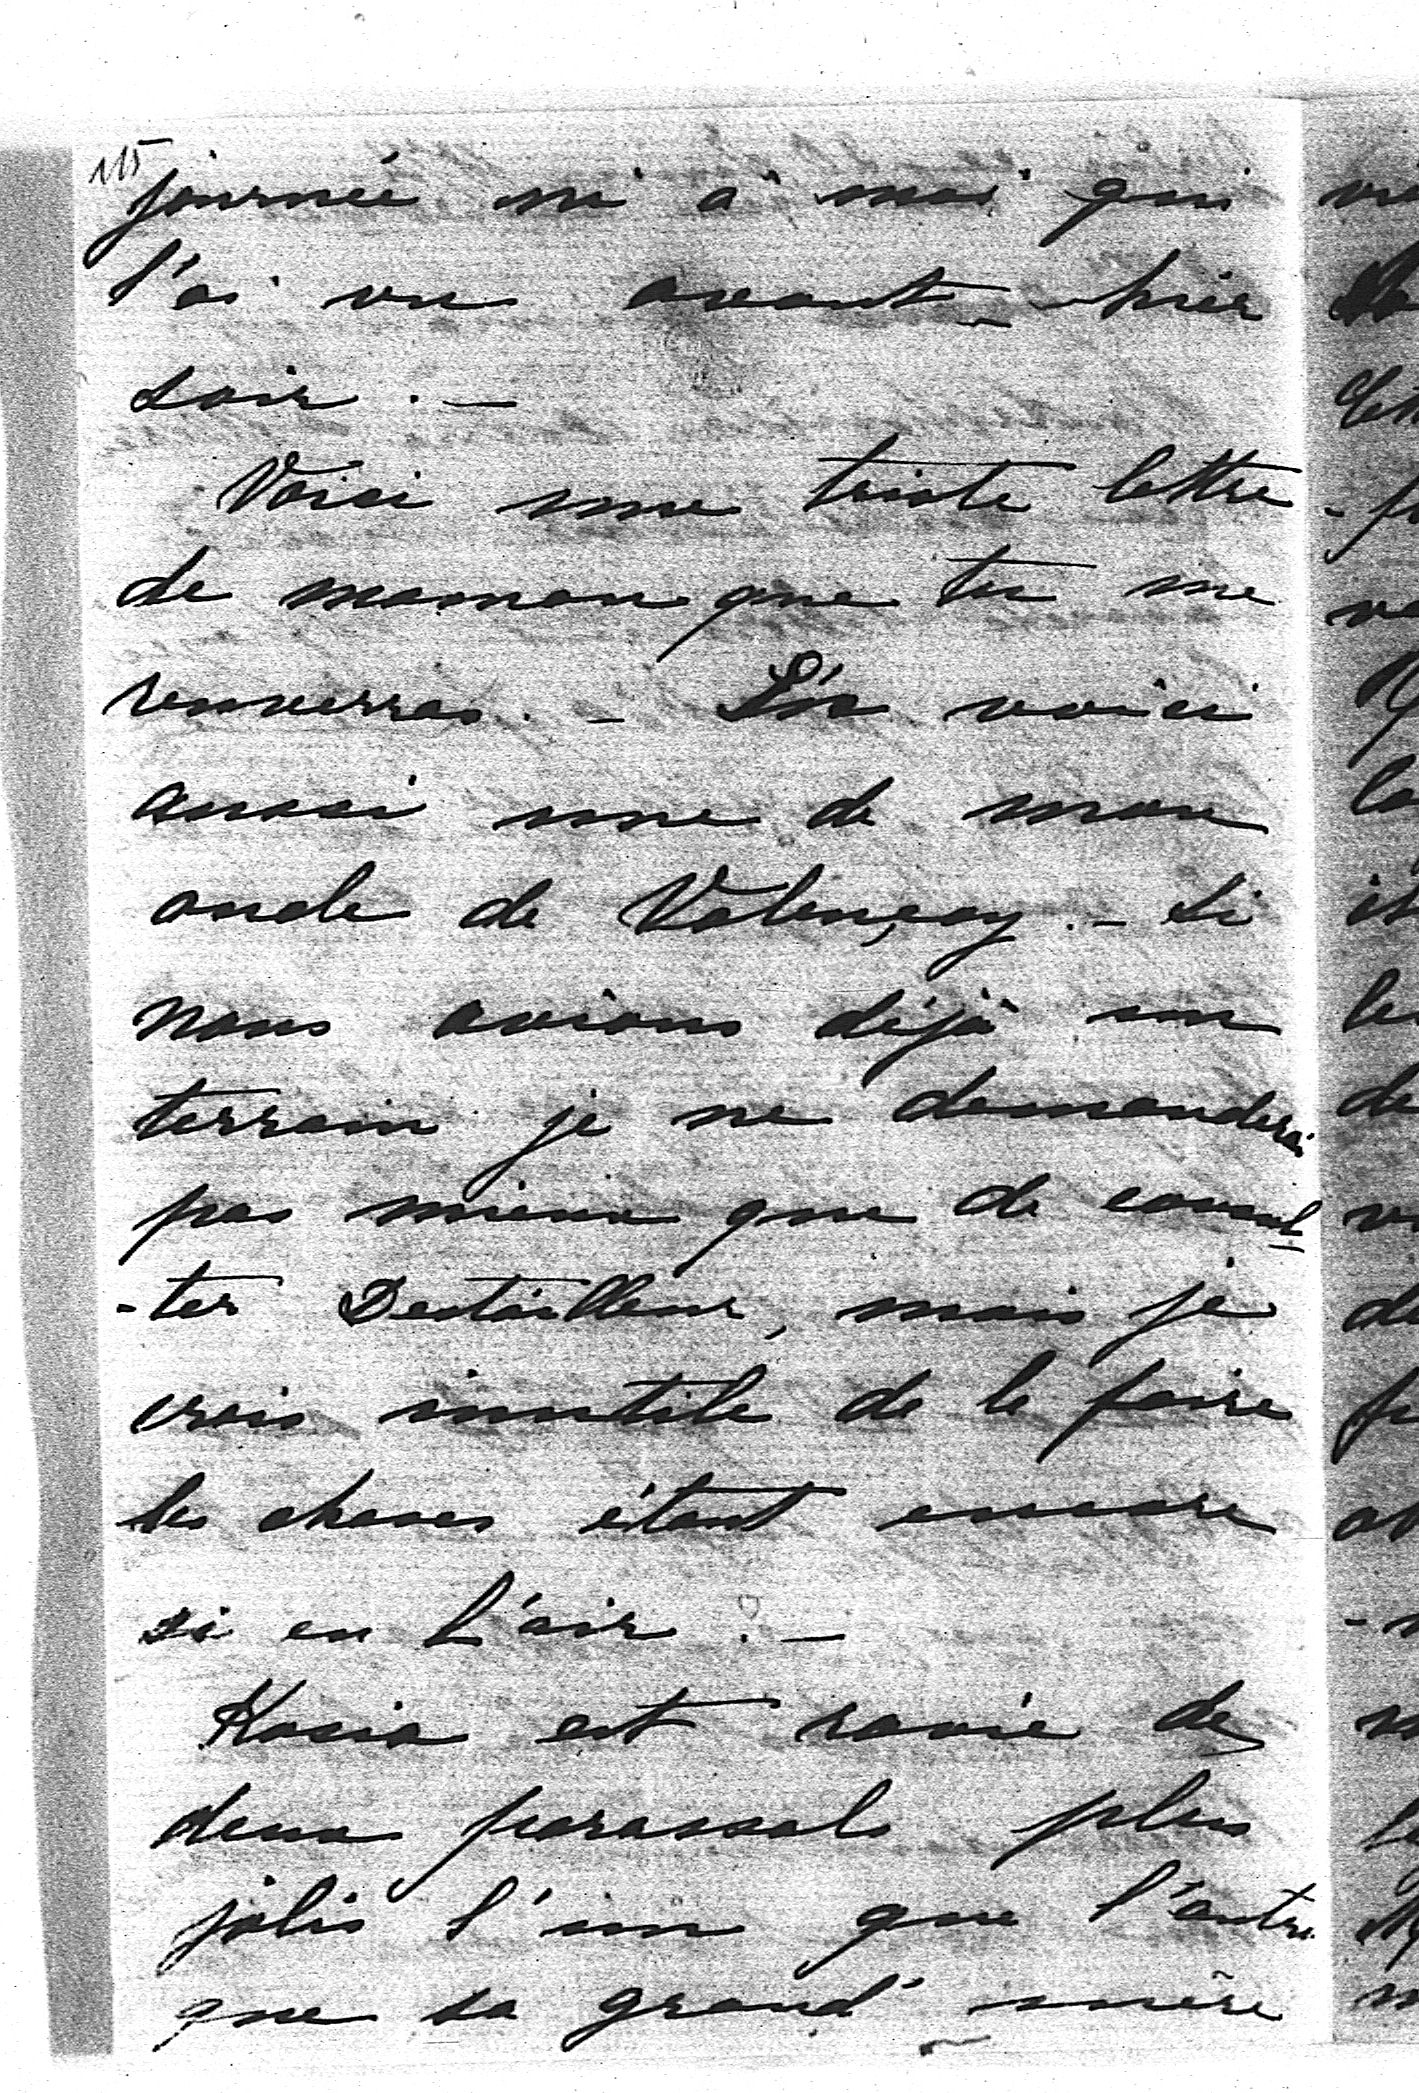 115
journée ni à moi qui
l'ai vu avant-hier
soir. —
Voici une triste lettre
de maman que tu me
renverras. — En voici
aussi une de mon
oncle de Valençay. — Si
nous avions déjà un
terrain je ne demanderai
pas mieux que de consul-
-ter Destailleur, mais je
crois inutile de le faire
les choses étant encore
si en l'air. —
Kosia est ravie de
deux parassols plus
jolis l'un que l'autre
que sa grand'mère